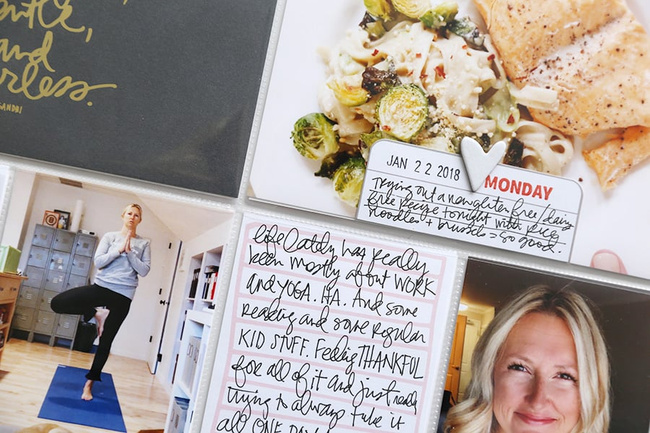 and
GANDHI
JAN 22 2018
MONDAY
Trying out a new gluten free/dairy
free recipe tonight with rice
noodles + brussels = so good.
life lately has really
been mostly about WORK
and YOGA. HA. And some
reading and some regular
KID STUFF. Feeling THANKFUL
for all of it and just really
trying to always take it
all ONE DAY